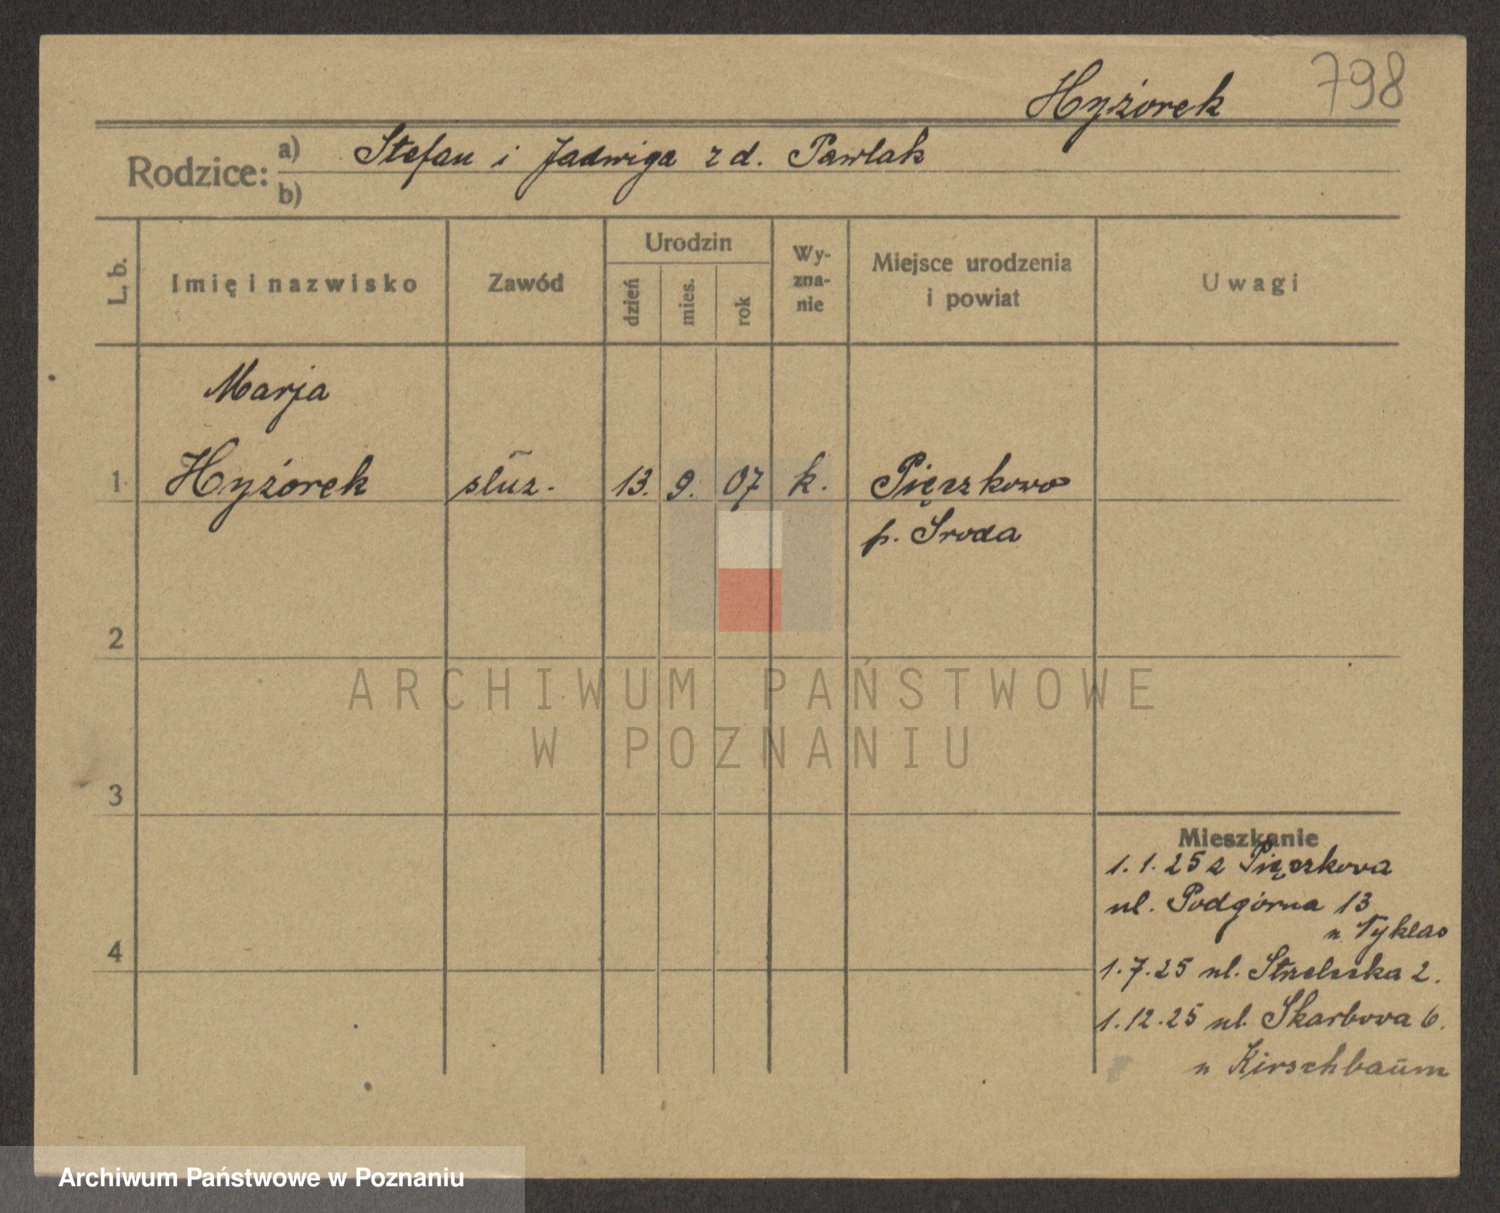 Hyżorek 798
Rodzice: a) Stefan i Jadwiga z d. Pawlak
b)
L. b. Imię i nazwisko Zawód Urodzin dzień mies. rok Wy-zna-nie Miejsce urodzenia i powiat Uwagi
Marja
1 Hyżorek służ. 13. 9. 07 k. Pięczkowo
p. Środa
2
ARCHIWUM PAŃSTWOWE
W POZNANIU
3
Mieszkanie
1.1.25 z Pięczkowa
ul. Podgórna 13
u Tyklas
4
1.7.25 ul. Strzelecka 2.
1.12.25 ul. Skarbowa 6.
u Kirschbaŭm
Archiwum Państwowe w Poznaniu